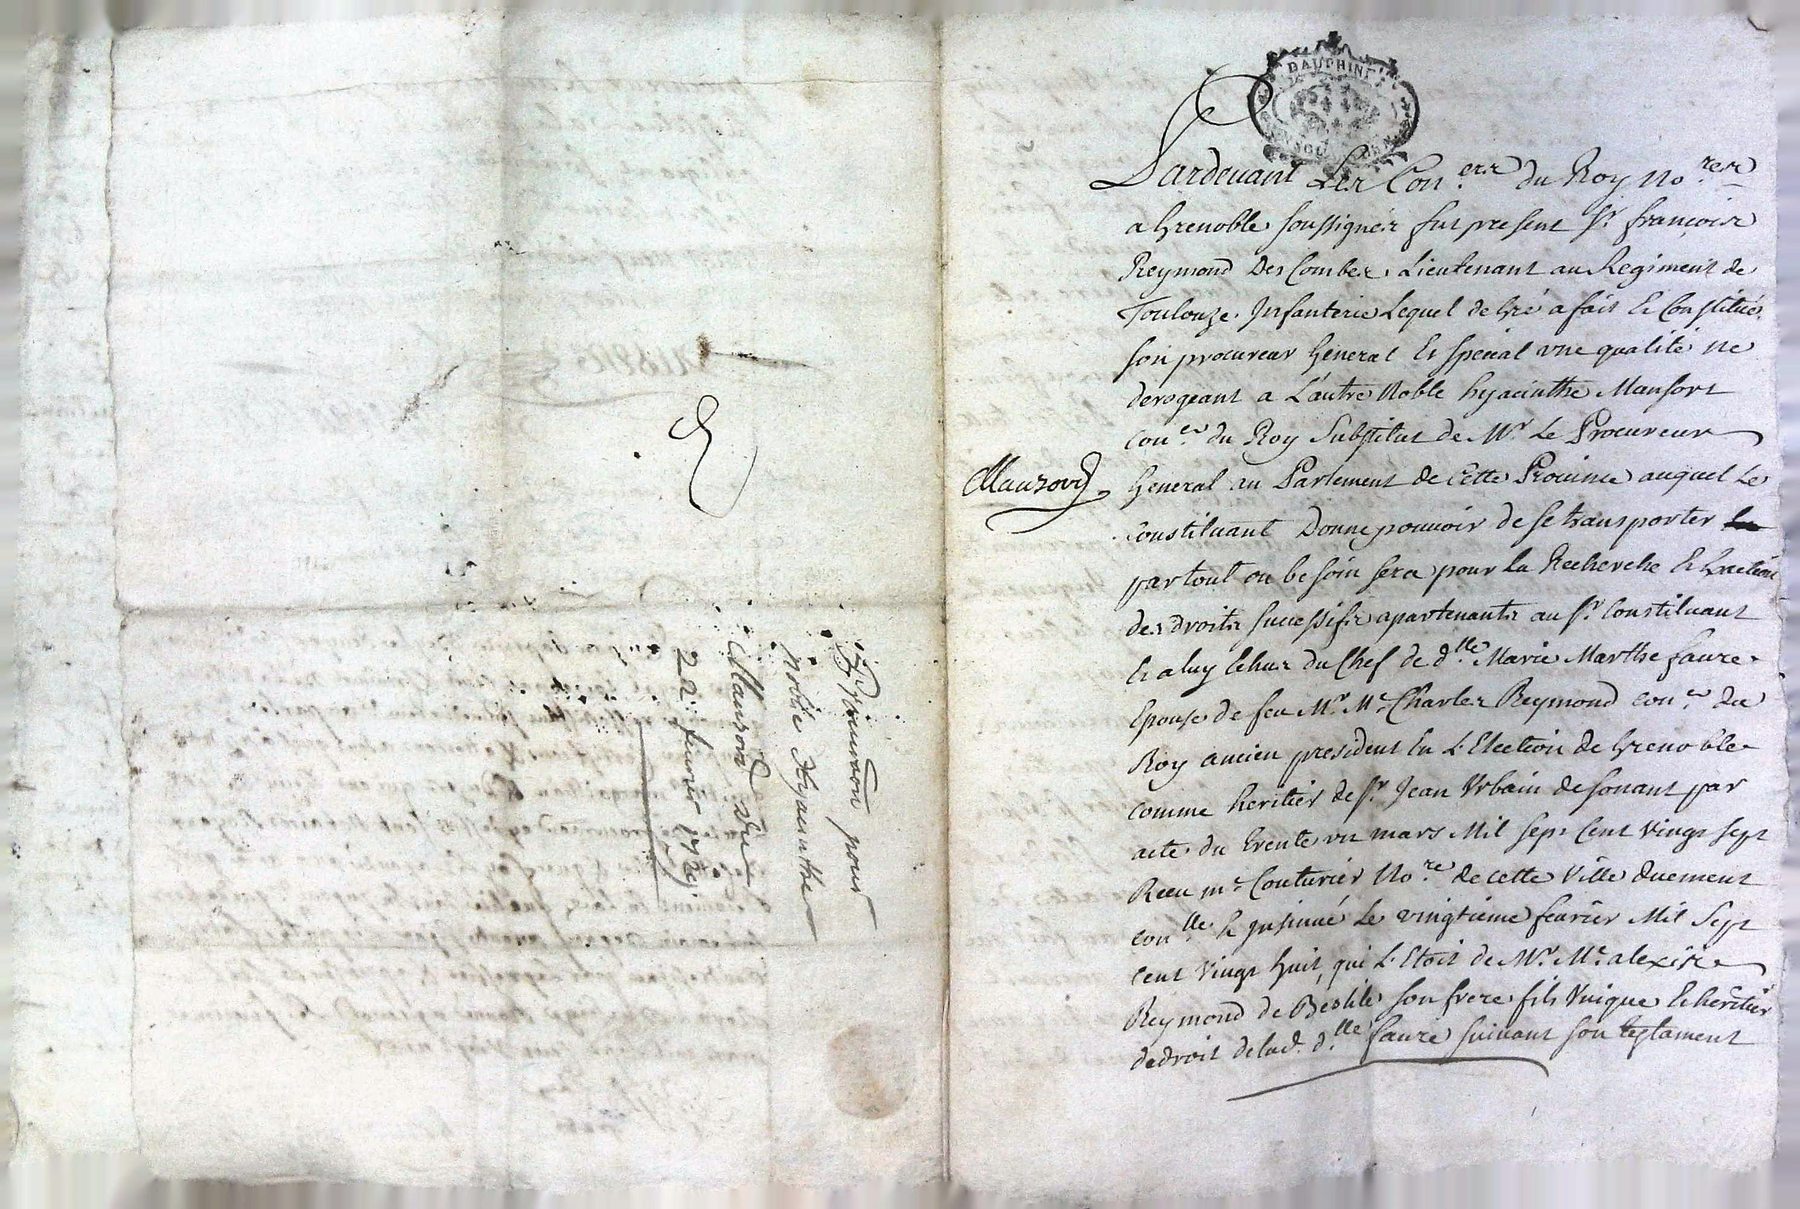 Procuration pour
Noble hyacinthe
Mauzord du
22 fevrier 1729
DAUPHINE
Pardevant Les Con.ers du Roy No.res
a Grenoble soussignés fut present Sr. françois
Reymond Des Combes, Lieutenant au Regiment de
Toulouze Infanterie Lequel de gré a fait Et Constitué
son procureur General Et special vne qualité ne
derogeant a L'autre Noble hyacinthe Mausort
con.er du Roy Substitut de Mr. Le Procureur
General au Parlement de cette Prouince auquel Le
Constituant Donne pouuoir de se transporter
par tout ou besoin sera pour La Recherche Et
des droits successifs apartenants au Sr. Constituant
Et a luy Echus du Chef de d.lle Marie Marthe faure
Epouse de feu Mr. Me. Charles Reymond con.er du
Roy ancien president En L'Election de Grenoble
comme heritier de Sr. Jean Vrbain de fonant par
acte du trente vn mars Mil sept Cent Vingt sept
Receu me. Couturier No.re de cette Ville duement
con.lle & Jnsinué Le vingtieme feurier Mil Sept
cent Vingt huit, qui L'Etoit de Mr. Me. alexis
Reymond de son frere fils Vnique Et heritier
de droit de lad. d.lle faure suiuant son testament
Mauzord